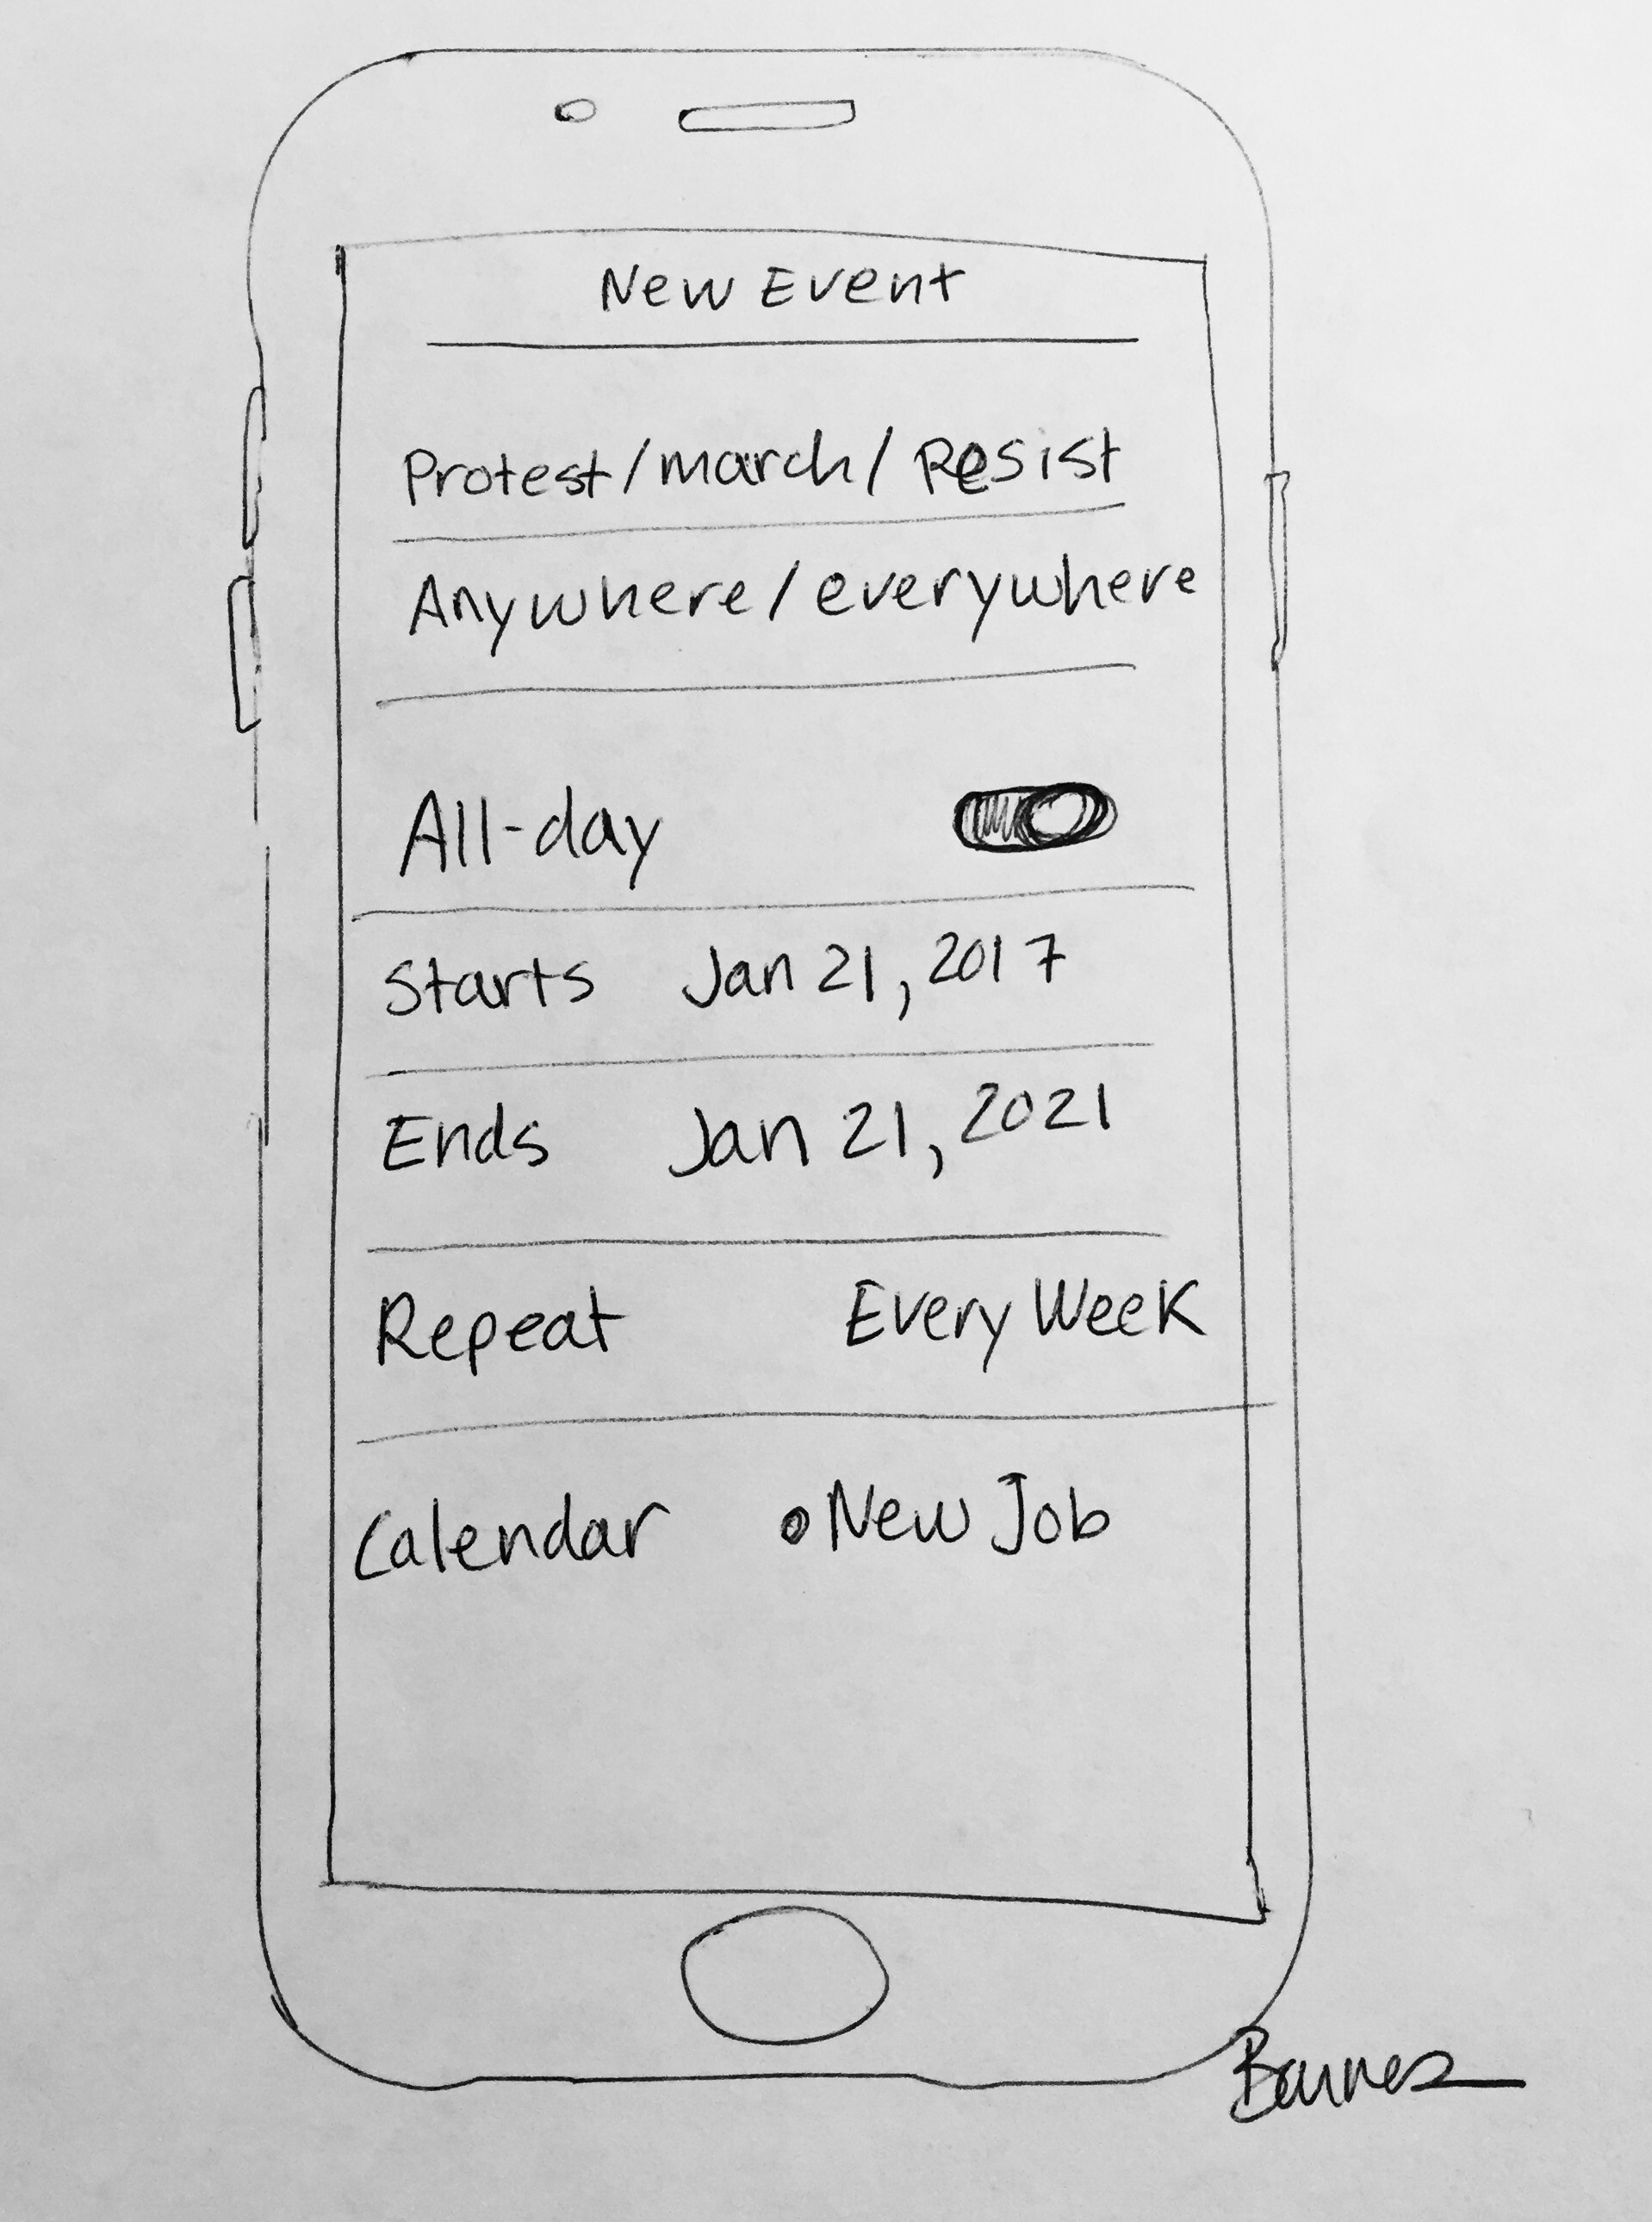 New Event
Protest/march/Resist
Anywhere/everywhere
All-day
Starts Jan 21, 2017
Ends Jan 21, 2021
Repeat Every Week
Calendar New Job
Barnes